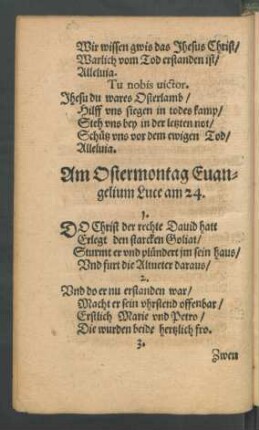 Wir wissen gwis das Jhesus Christ/
Warlich vom Tod erstanden ist/
Alleluia.
Tu nobis uictor.
Jhesu du wares Osterlamb/
Hilff vns siegen in todes kamp/
Steh vns bey in der letzten not/
Schütz vns vor dem ewigen Tod/
Alleluia.
Am Ostermontag Euan-
gelium Luce am 24.
1.
DO Christ der rechte Dauid hatt
Erlegt den starcken Goliat/
Sturmt er vnd plündert jm sein haus/
Vnd furt die Almeter daraus/
2.
Vnd do er nu erstanden war/
Macht er sein vhrstend offenbar/
Erstlich Marie vnd Petro/
Die wurden beide hertzlich fro.
3.
Zwen